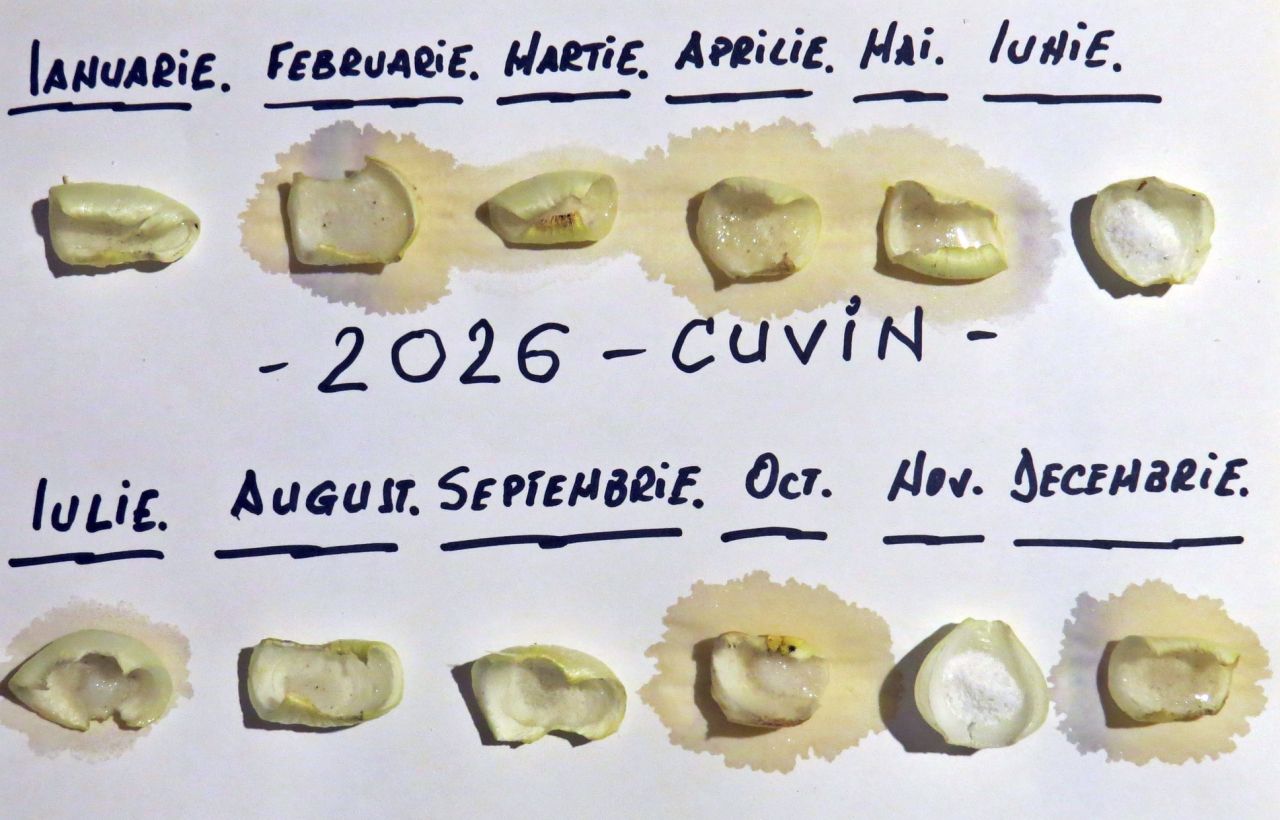 IANUARIE. FEBRUARIE. MARTIE. APRILIE. MAI. IUNIE.
- 2026 - CUVIN -
IULIE. AUGUST. SEPTEMBRIE. OCT. NOV. DECEMBRIE.